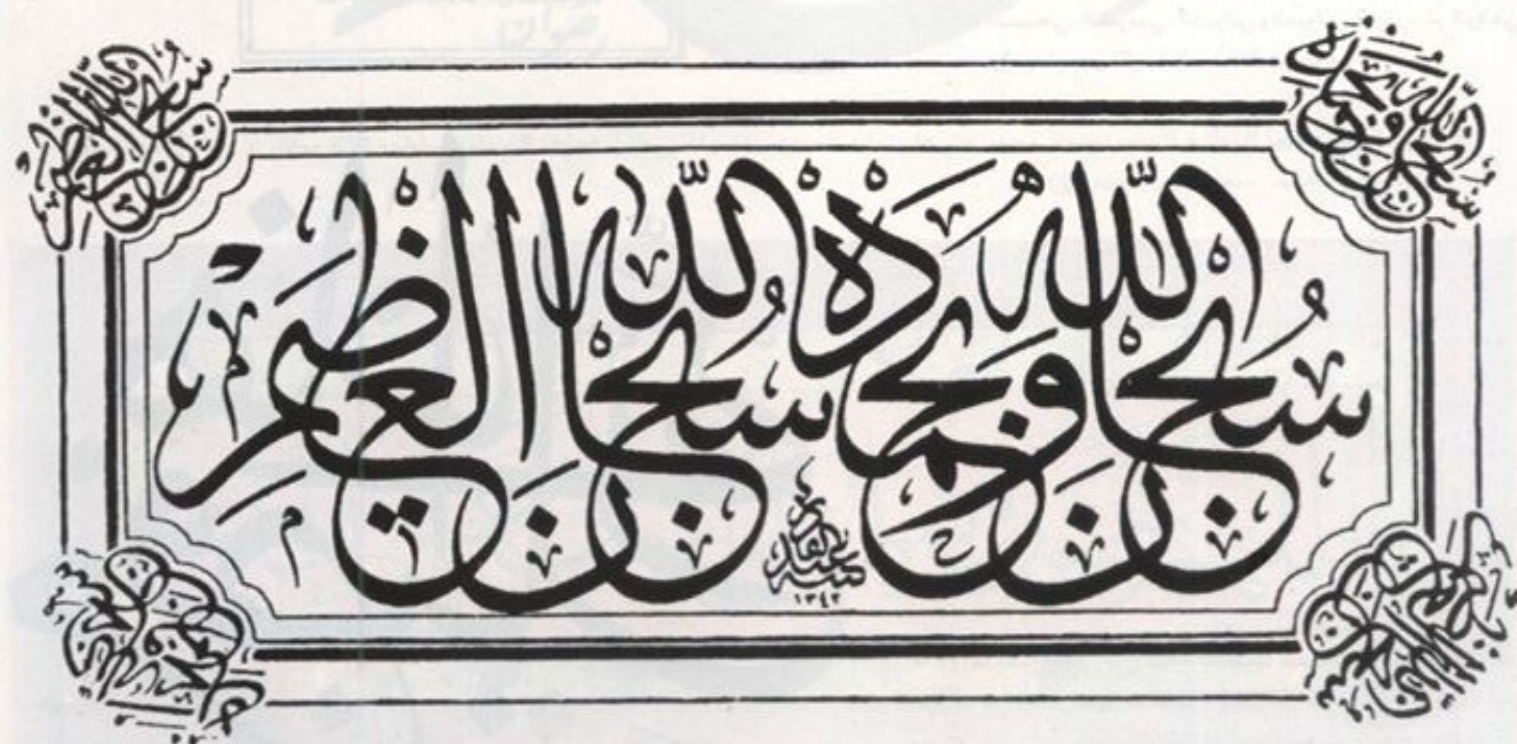 سُبْحَانَ اللّٰهِ وَبِحَمْدِهِ سُبْحَانَ اللّٰهِ الْعَظِيمِ
عبد القادر
سنه ١٣٤٢
سبحان الله وبحمده
سبحان الله العظيم